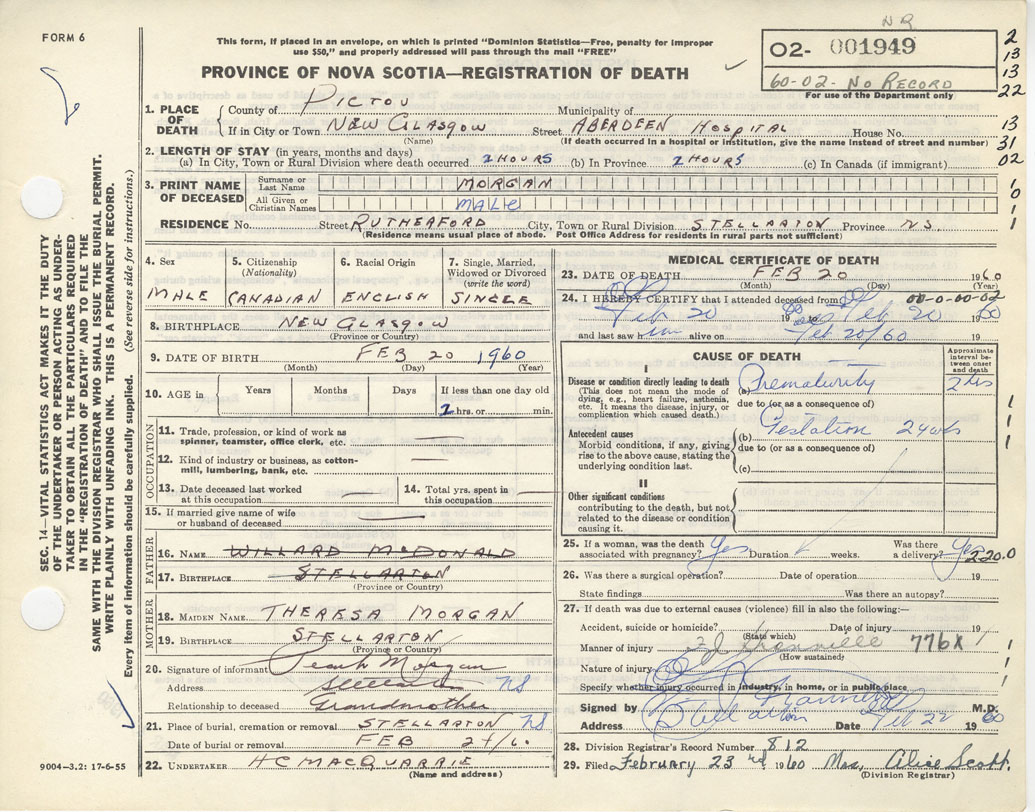 NR
FORM 6
This form, if placed in an envelope, on which is printed "Dominion Statistics—Free, penalty for improper
use $50," and properly addressed will pass through the mail "FREE"
PROVINCE OF NOVA SCOTIA—REGISTRATION OF DEATH
02- 001949
60-02- No Record
For use of the Department only
2
13
13
22
13
31
02
1
0
1
SEC. 14—VITAL STATISTICS ACT MAKES IT THE DUTY
OF THE UNDERTAKER OR PERSON ACTING AS UNDER-
TAKER TO OBTAIN ALL THE PARTICULARS REQUIRED
IN THE "REGISTRATION OF DEATH" AND TO FILE THE
SAME WITH THE DIVISION REGISTRAR WHO SHALL ISSUE THE BURIAL PERMIT.
WRITE PLAINLY WITH UNFADING INK. THIS IS A PERMANENT RECORD.
Every item of information should be carefully supplied. (See reverse side for instructions.)
1. PLACE OF DEATH
County of PICTOU Municipality of
If in City or Town NEW GLASGOW Street ABERDEEN HOSPITAL House No.
(Name) (If death occurred in a hospital or institution, give the name instead of street and number)
2. LENGTH OF STAY (in years, months and days)
(a) In City, Town or Rural Division where death occurred 2 HOURS (b) In Province 2 HOURS (c) In Canada (if immigrant)
3. PRINT NAME OF DECEASED
Surname or Last Name MORGAN
All Given or Christian Names MALE
RESIDENCE No. Street RUTHERFORD City, Town or Rural Division STELLARTON Province N.S.
(Residence means usual place of abode. Post Office Address for residents in rural parts not sufficient)
4. Sex MALE
5. Citizenship (Nationality) CANADIAN
6. Racial Origin ENGLISH
7. Single, Married, Widowed or Divorced (write the word) SINGLE
8. BIRTHPLACE NEW GLASGOW
(Province or Country)
9. DATE OF BIRTH FEB 20 1960
(Month) (Day) (Year)
10. AGE in Years Months Days If less than one day old
2 hrs. or min.
OCCUPATION
11. Trade, profession, or kind of work as
spinner, teamster, office clerk, etc.
12. Kind of industry or business, as cotton-
mill, lumbering, bank, etc.
13. Date deceased last worked
at this occupation
14. Total yrs. spent in
this occupation
15. If married give name of wife
or husband of deceased
FATHER
16. NAME WILLARD McDONALD
17. BIRTHPLACE STELLARTON
(Province or Country)
MOTHER
18. MAIDEN NAME THERESA MORGAN
19. BIRTHPLACE STELLARTON
(Province or Country)
20. Signature of informant Morgan
Address NS
Relationship to deceased Grandmother
21. Place of burial, cremation or removal STELLARTON NS
Date of burial or removal FEB
22. UNDERTAKER HC MACQUARRIE
(Name and address)
9004—3.2: 17-6-55
MEDICAL CERTIFICATE OF DEATH
23. DATE OF DEATH FEB 20 1960
(Month) (Day) (Year)
24. I HEREBY CERTIFY that I attended deceased from 00-0-00-02
Feb 20 19 to Feb 20 1960
and last saw him alive on Feb 20/60 19
CAUSE OF DEATH
Approximate interval between onset and death
I
Disease or condition directly leading to death
(This does not mean the mode of
dying, e.g., heart failure, asthenia,
etc. It means the disease, injury, or
complication which caused death.)
(a) Prematurity 2 hrs
due to (or as a consequence of)
Antecedent causes
Morbid conditions, if any, giving
rise to the above cause, stating the
underlying condition last.
(b) Gestation 24 wks
due to (or as a consequence of)
(c)
II
Other significant conditions
contributing to the death, but not
related to the disease or condition
causing it.
1
1
1
25. If a woman, was the death
associated with pregnancy? Yes Duration weeks. Was there
a delivery? Yes 220.0
26. Was there a surgical operation? Date of operation 19
State findings Was there an autopsy?
27. If death was due to external causes (violence) fill in also the following:—
Accident, suicide or homicide? Date of injury 19
(State which)
Manner of injury 776X
(How sustained)
Nature of injury
Specify whether injury occurred in industry, in home, or in public place
1
1
1
Signed by M.D.
Address Stellarton Date Feb 22 1960
28. Division Registrar's Record Number 812
29. Filed February 23rd 1960 Mrs. Alice Scott.
(Division Registrar)